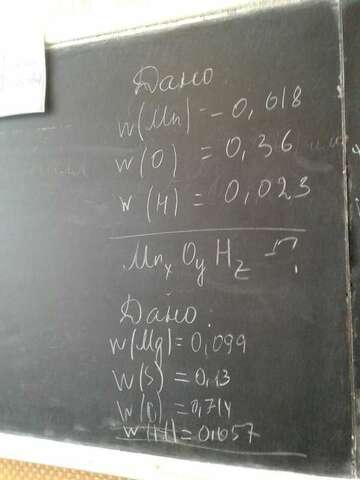 Дано:
w(Mn) = 0,618
w(O) = 0,36
w(H) = 0,023
MnxOyHz - ?
Дано:
w(Mg)=0,099
w(S) = 0,13
w(O) = 0,714
w(H)=0,057